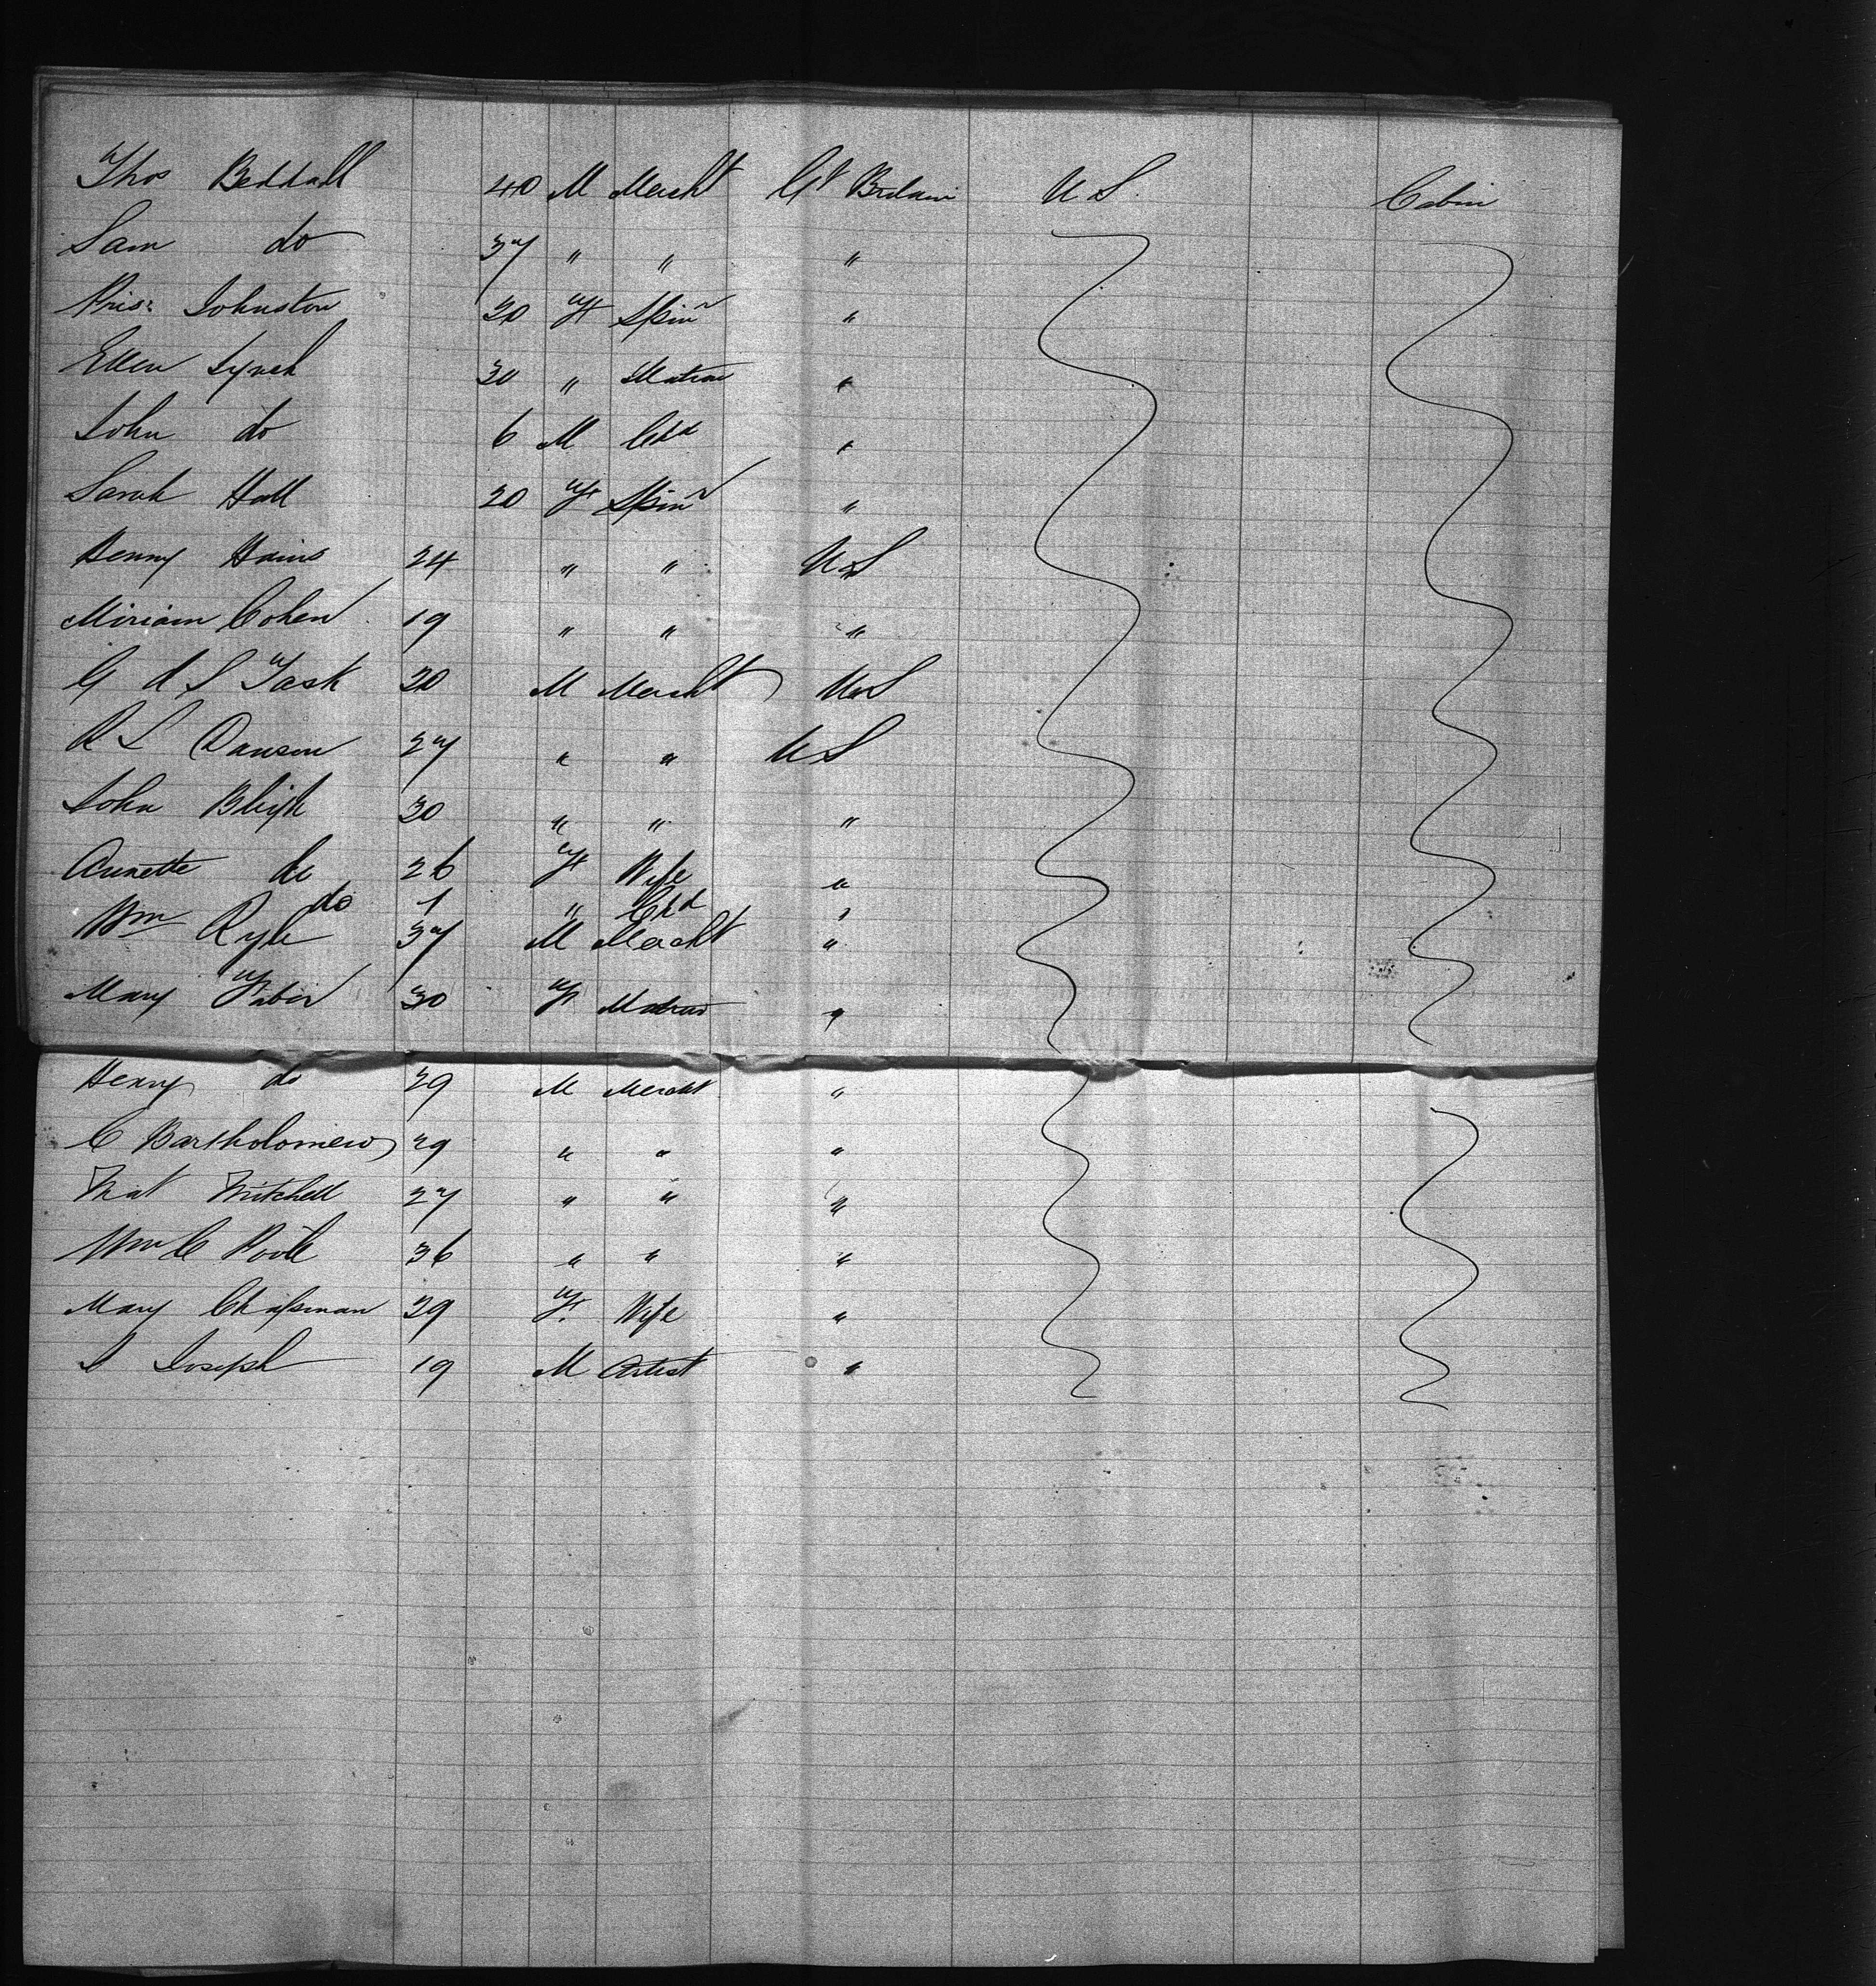 Thos Beddall 40 M Mercht Gt Britain U S. Cabin
Sam do 37 " " "
Pris: Johnston 20 F Spinr "
Ellen Lynch 30 " Matron "
John do 6 M Chd "
Sarah Hall 20 F Spinr "
Henny Hains 24 " " U S
Miriam Cohen 19 " " "
G d S Task 20 M Mercht U S
R L Danson 27 " " U S
John Bligh 30 " " "
Annette do 26 F Wife "
do 1 " Chd "
Wm Ryle 37 M Mercht "
Mary Faber 30 F Matron "
Henry do 29 M Mercht "
C Bartholomew 29 " " "
Mat Mitchell 27 " " "
Wm C Poole 36 " " "
Mary Chapman 29 F. Wife "
I Joseph 19 M Artist "